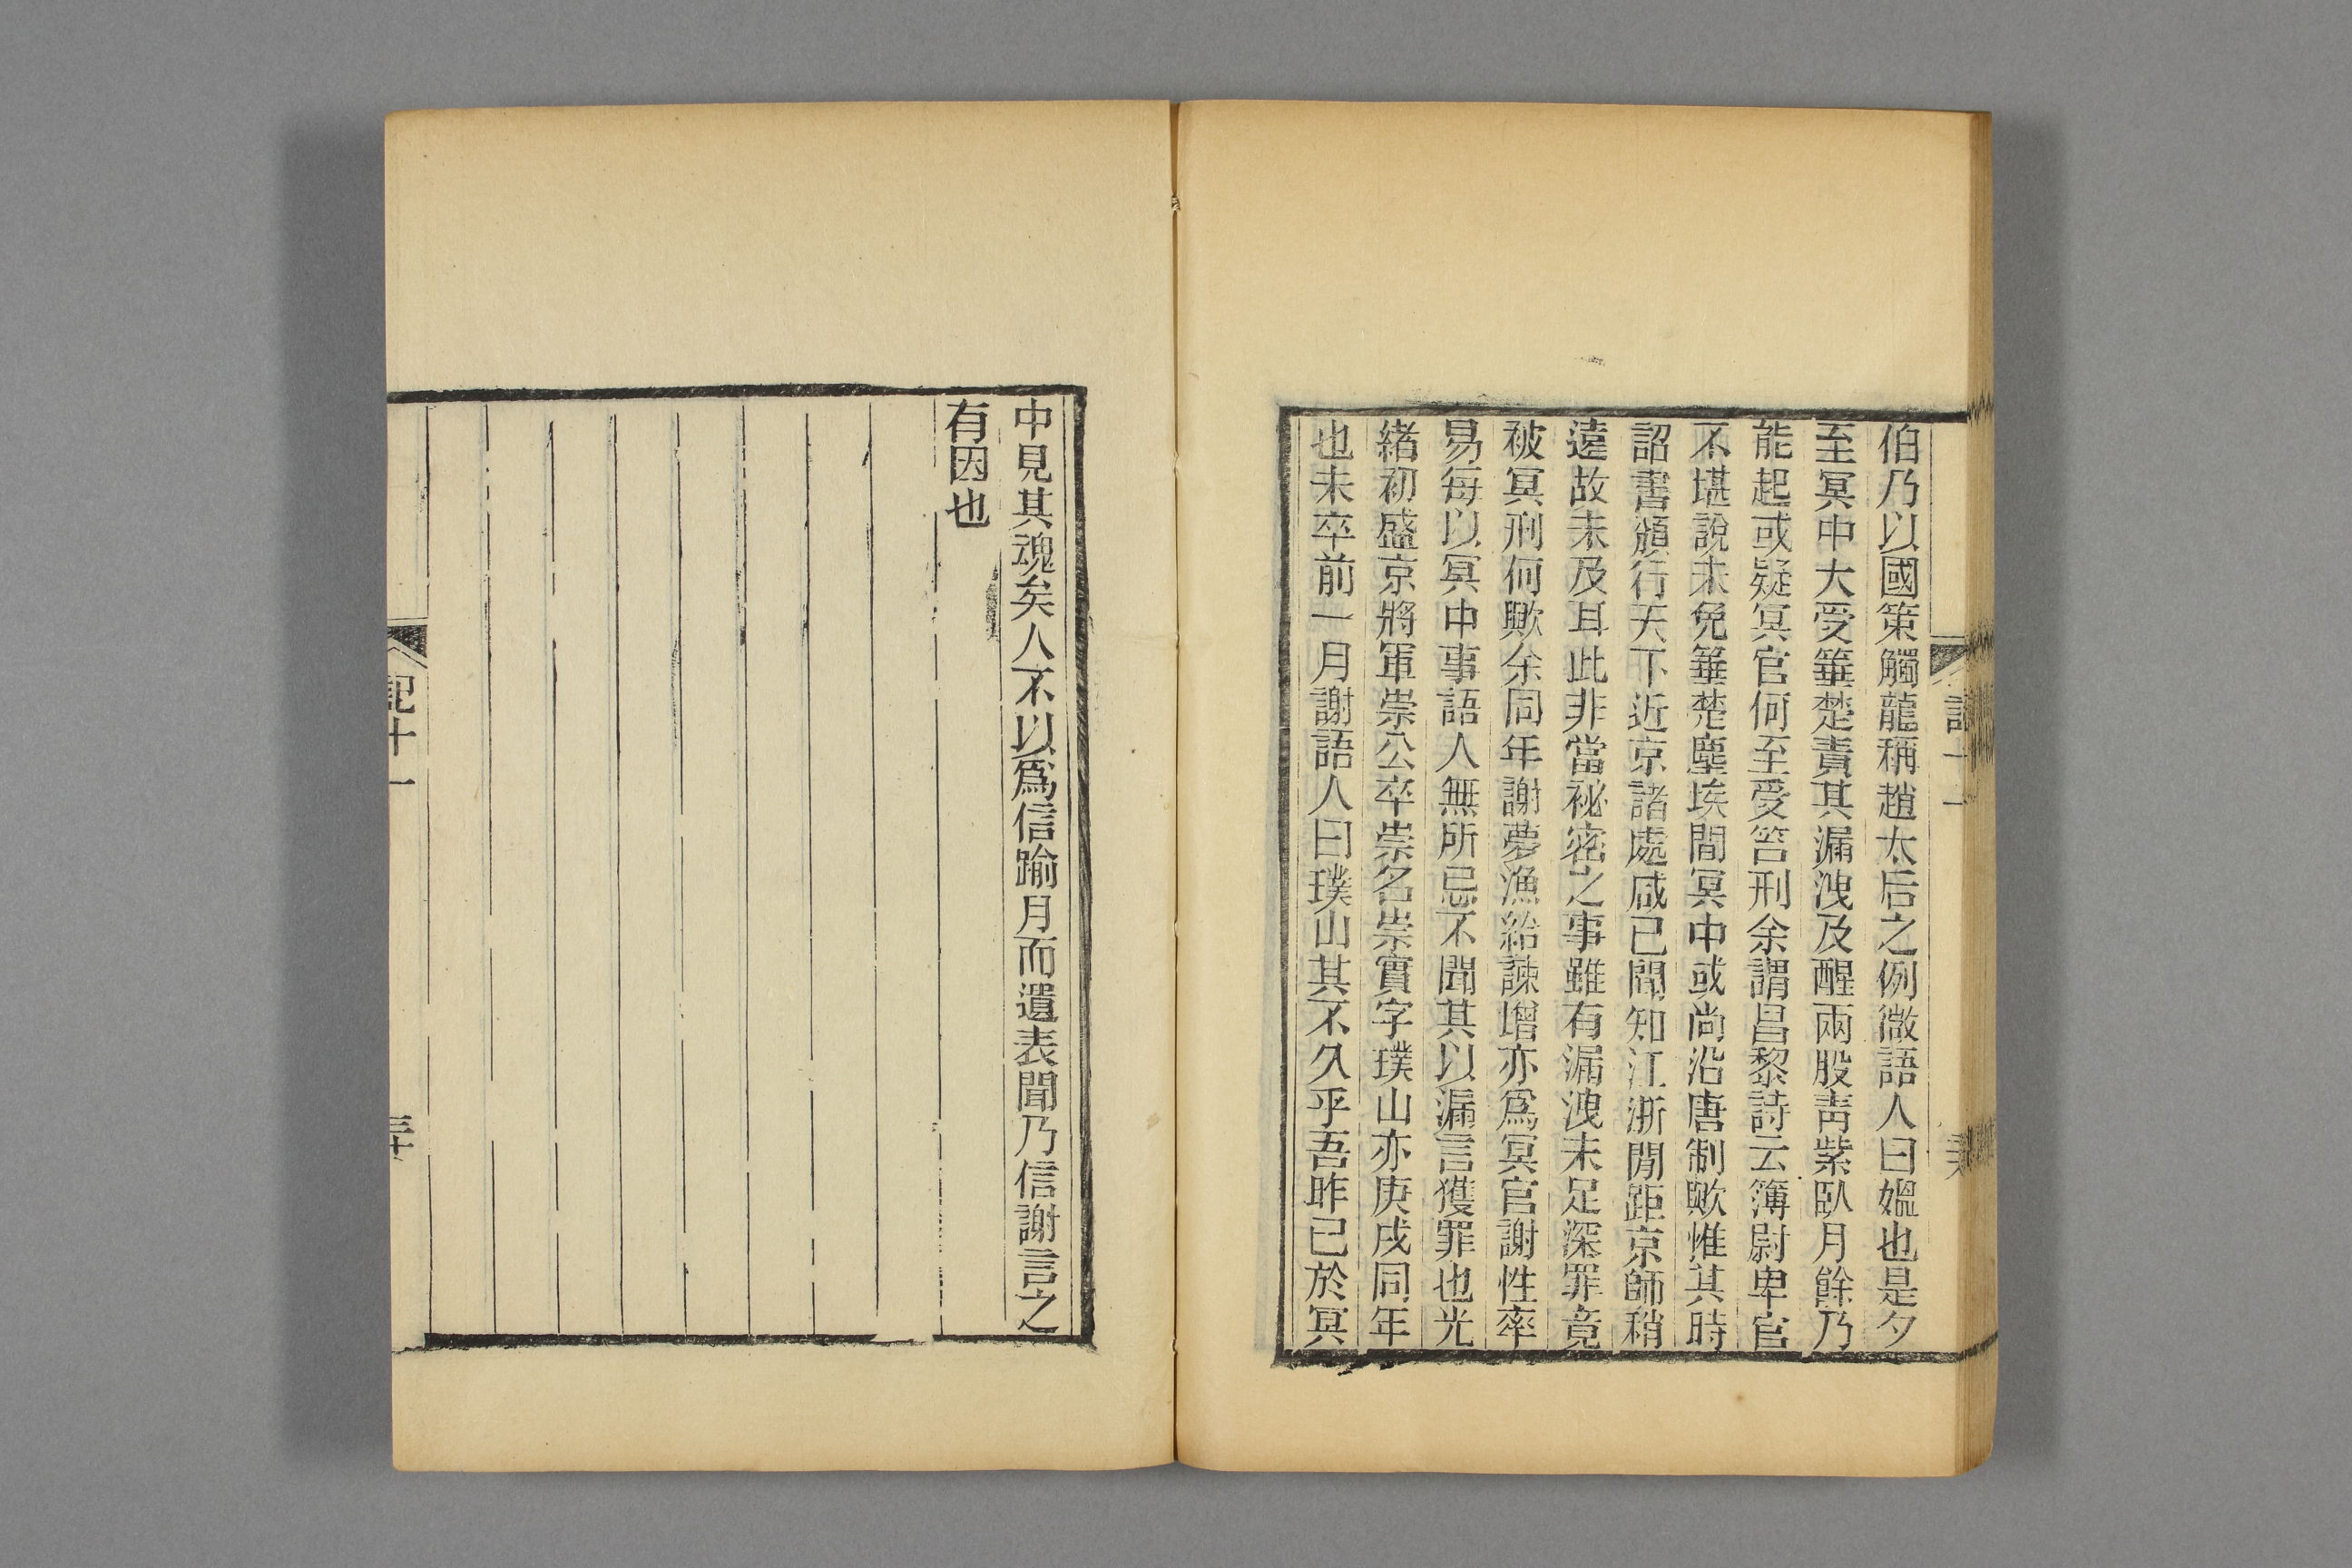 伯乃以國策觸龍稱趙太后之例微語人曰媼也是夕
至冥中大受箠楚責其漏洩及醒兩股靑紫臥月餘乃
能起或疑冥官何至受笞刑余謂昌黎詩云簿尉卑官
不堪說未免箠楚塵埃間冥中或尚沿唐制歟惟其時
詔書頒行天下近京諸處咸已聞知江浙閒距京師稍
遠故未及耳此非當祕密之事雖有漏洩未足深罪竟
被冥刑何歟余同年謝夢漁給諫增亦爲冥官謝性率
易每以冥中事語人無所忌不聞其以漏言獲罪也光
緒初盛京將軍崇公卒崇名崇實字璞山亦庚戌同年
也未卒前一月謝語人曰璞山其不久乎吾昨已於冥
中見其魂矣人不以爲信踰月而遺表聞乃信謝言之
有因也
記十一